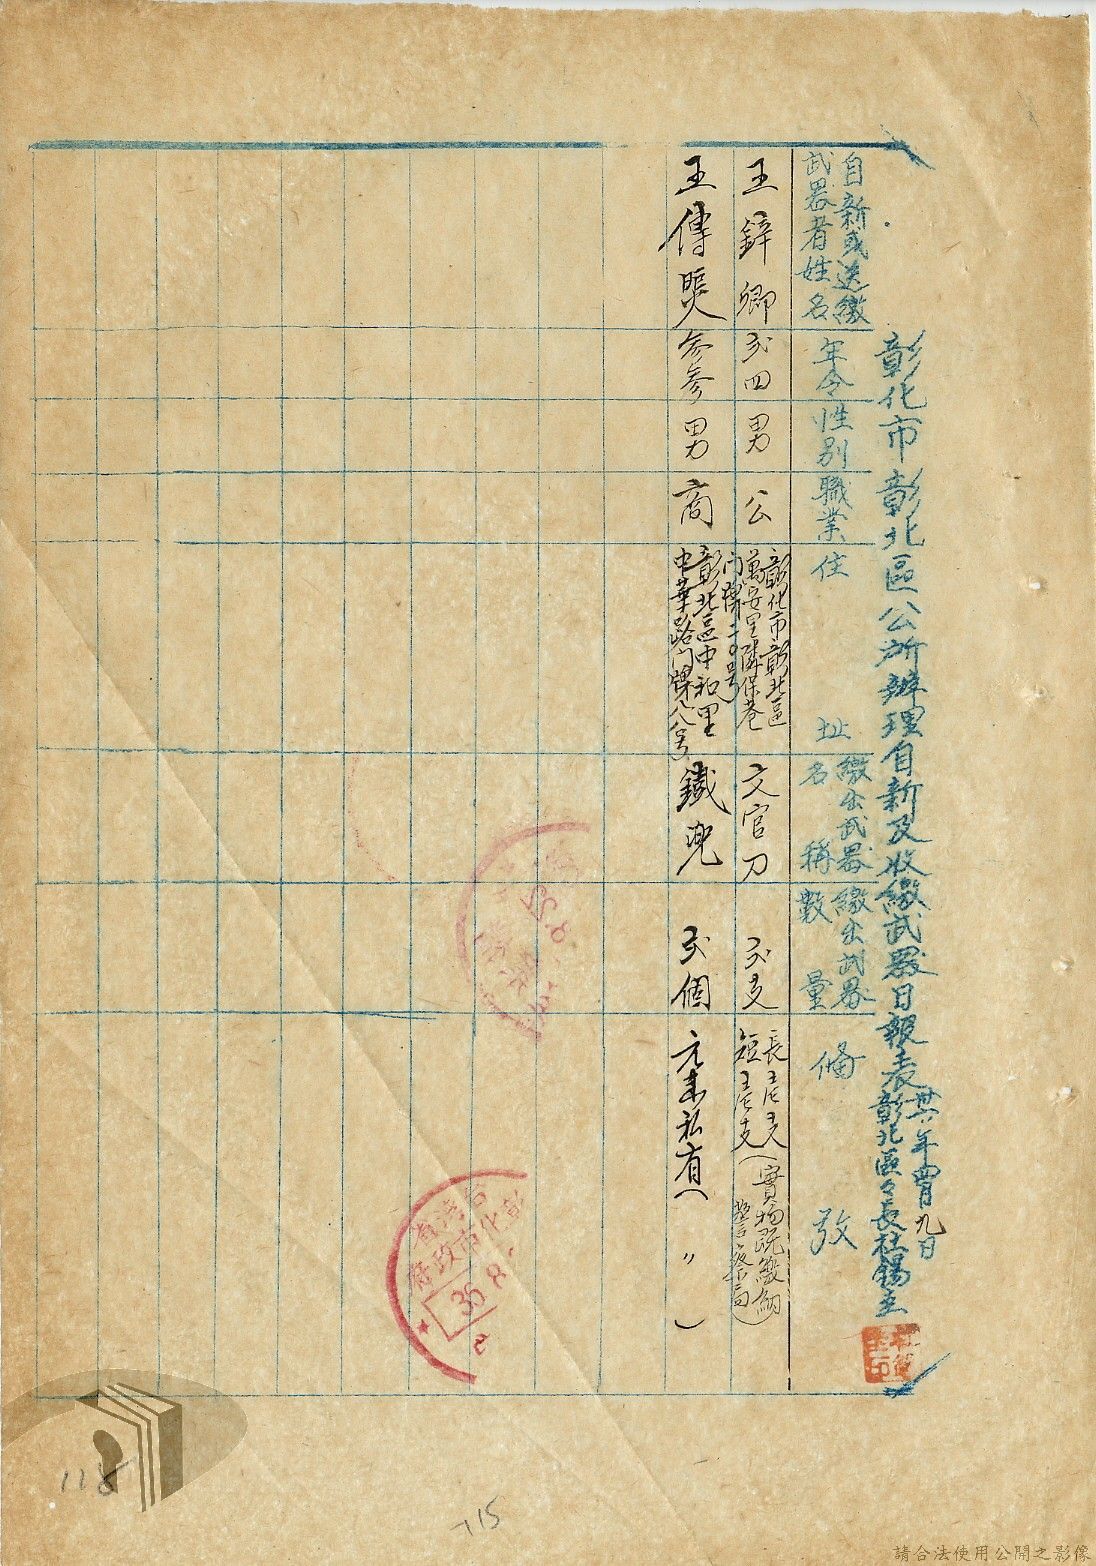 彰化市彰北區公所辦理自新及收繳武器日報表
卅六年四月九日
彰北區々長杜錫圭
自新或送繳
武器者姓名
年令
性別
職業
住址
繳出武器
名稱
繳出武器
數量
備攷
王鋅卿
弍四
男
公
彰化市彰北區
萬安里隣保巷
門牌二0号
文官刀
弍支
長壱支
短壱支
(實物既繳納
警察局)
王傳煚
參參
男
商
彰北區中和里
中華路門牌八号
鐵兜
弍個
元来私有(〃)
台灣省
彰化市政府
36. 8.
118
115
請合法使用公開之影像